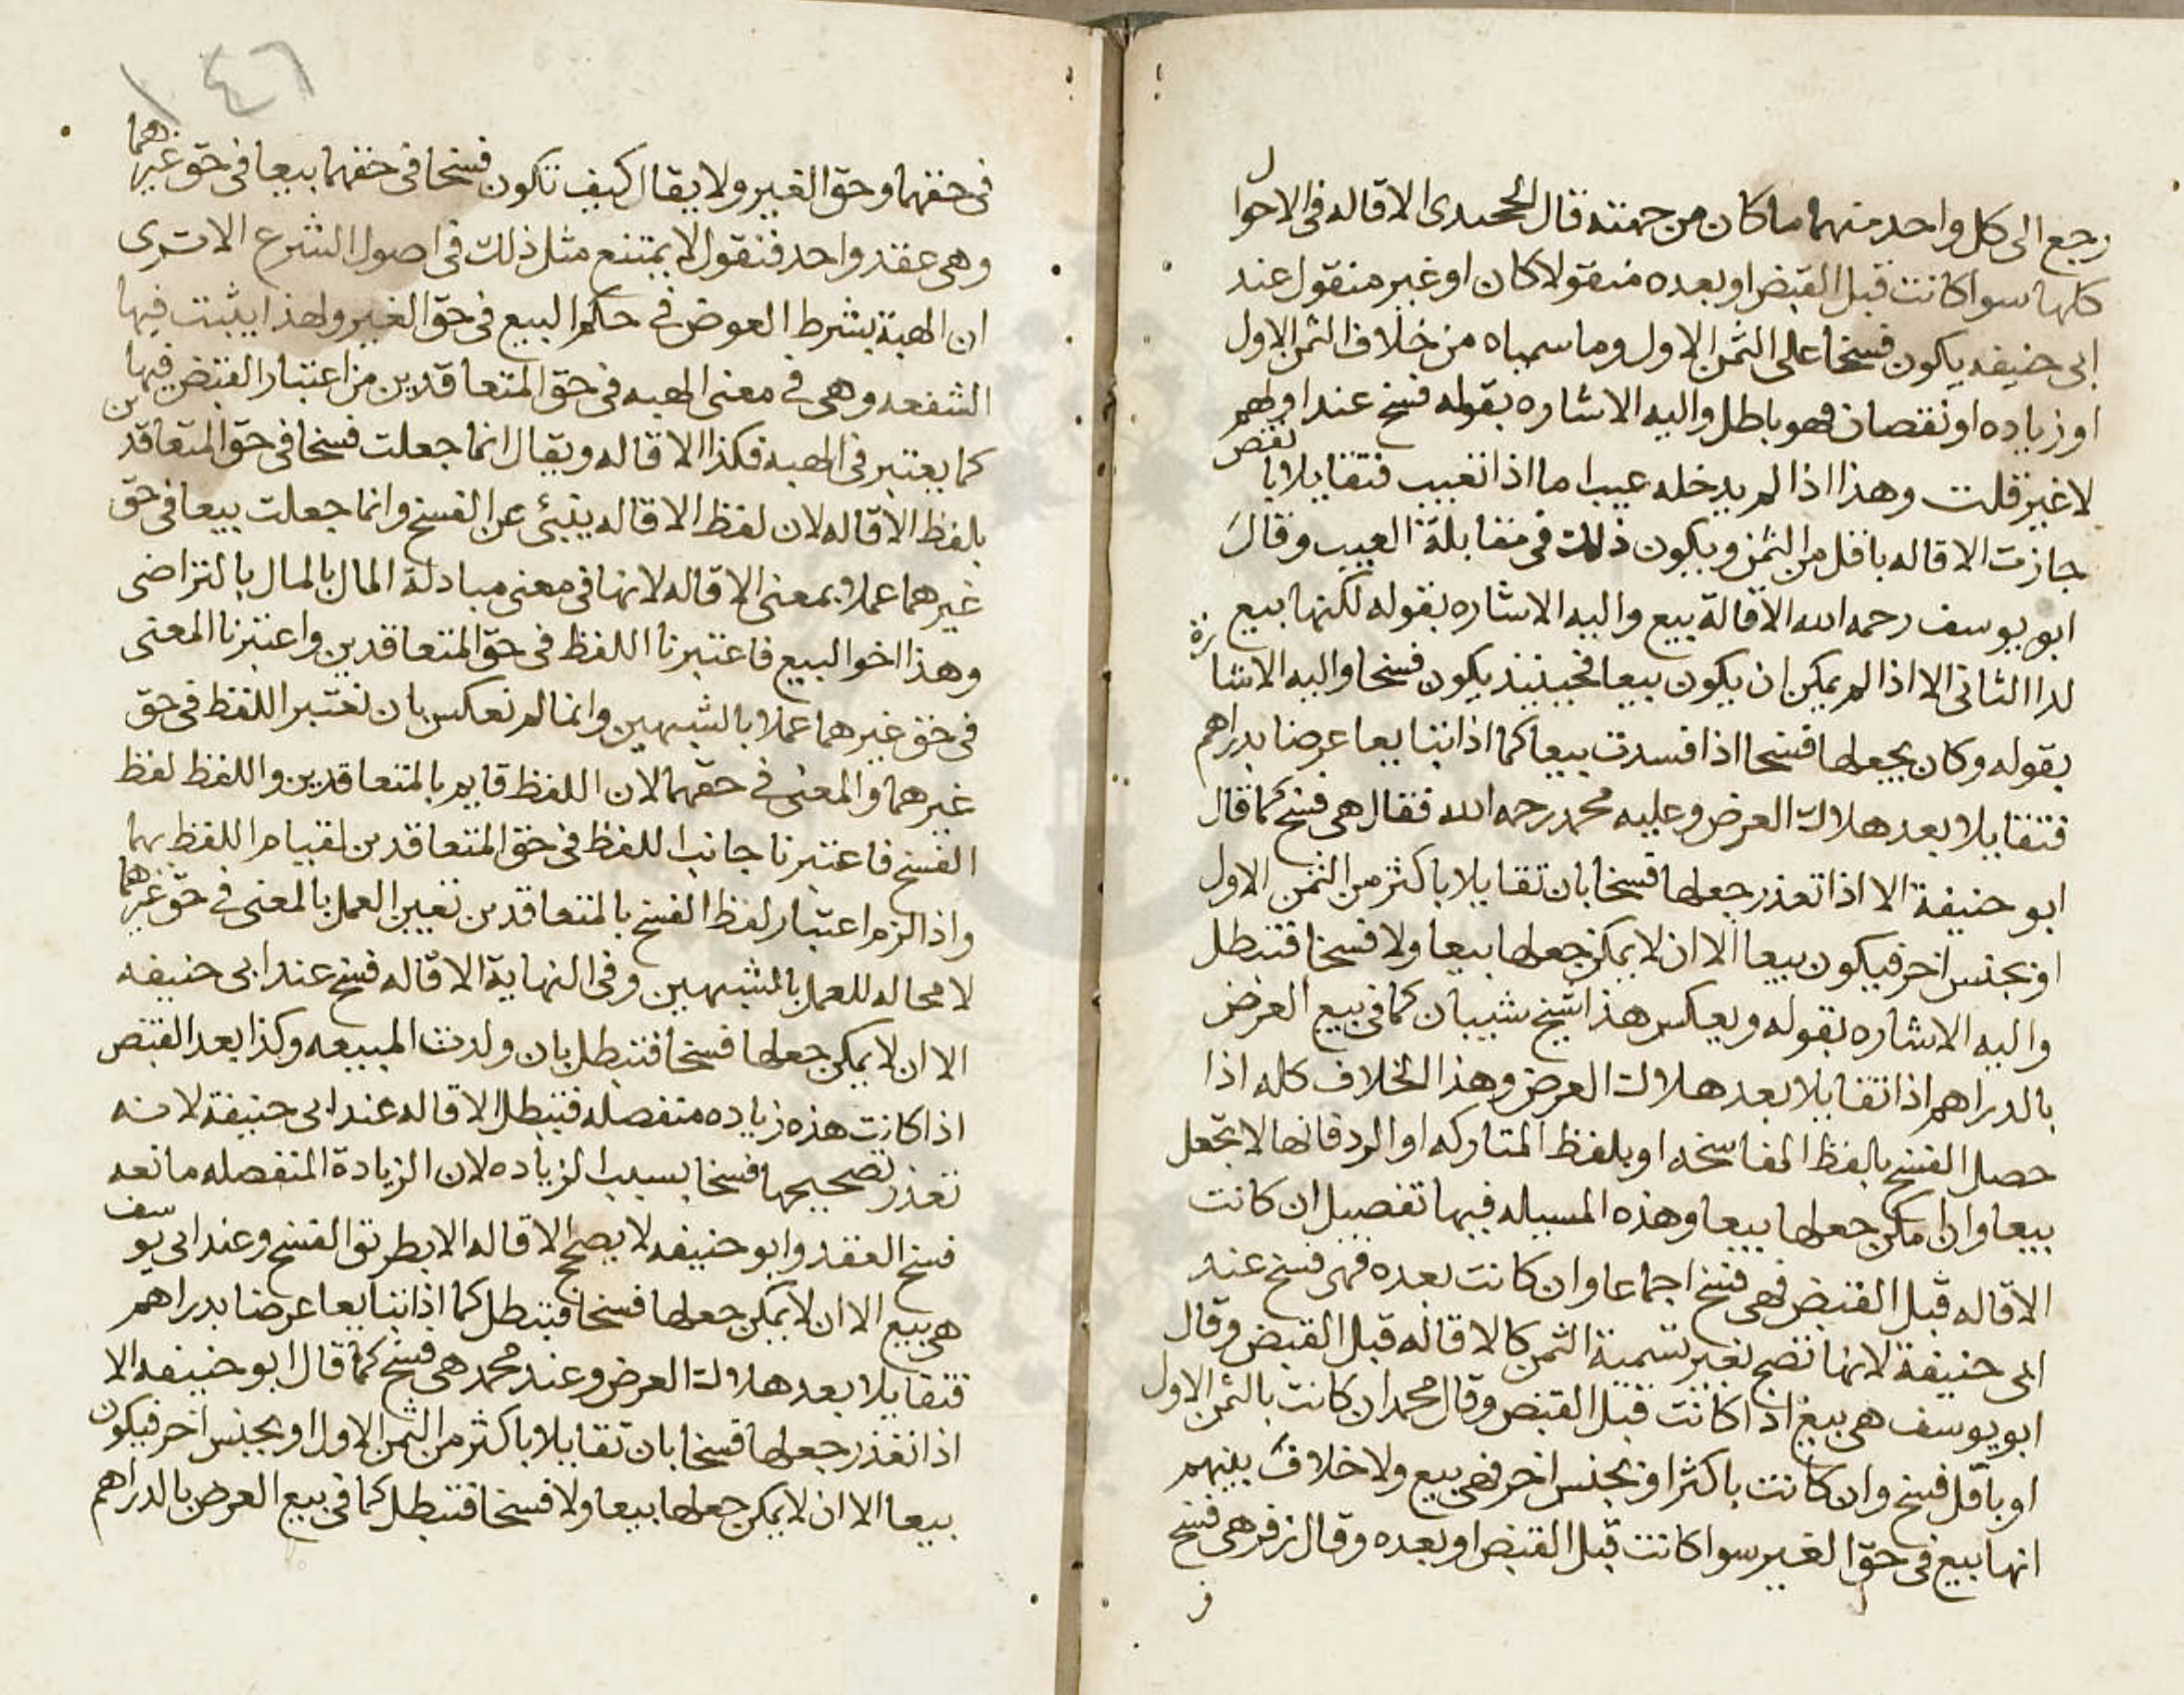 رجع الى كل واحد منهما ما كان من جهته قال الخجندى الاقاله فى الاحوال
كلها سوا كانت قبل القبض او بعده منقولا كان او غير منقول عند
ابى حنيفه يكون فسخا على الثمن الاول وما سمياه من خلاف الثمن الاول
او زياده او نقصان فهو باطل واليه الاشاره بقوله فسخ عند اولهم
لا غير قلت وهذا اذا لم يدخله عيب اما اذا تعيب فتقايلا با نقص
جازت الاقاله باقل من الثمن ويكون ذلك فى مقابلة العيب وقال
ابو يوسف رحمه الله الاقالة بيع واليه الاشاره بقوله لكنها بيع
لدا الثانى الا اذا لم يمكن ان يكون بيعا فحينيذ يكون فسخا واليه الاشارة
بقوله وكان يجعلها فسخا اذا فسدت بيعا كما اذا تبايعا عرضا بدراهم
فتقايلا بعد هلاك العرض وعليه محمد رحمه الله فقال هى فسخ كما قال
ابو حنيفة الا اذا تعذر جعلها فسخا بان تقايلا باكثر من الثمن الاول
او بجنس اخر فيكون بيعا الا ان لا يمكن جعلها بيعا ولا فسخا فتبطل
واليه الاشاره بقوله ويعكس هذا شيخ شيبان كما فى بيع العرض
بالدراهم اذا تقايلا بعد هلاك العرض وهذا الخلاف كله اذا
حصل الفسخ بالفظ المفاسخه او بلفظ المتاركه او الرد فانها لا تجعل
بيعا وان امكن جعلها بيعا وهذه المسيله فيها تفصيل ان كانت
الاقاله قبل القبض فهى فسخ اجماعا وان كانت بعده فهى فسخ عند
ابى حنيفة لانها تصح بغير تسمية الثمن كالاقاله قبل القبض وقال
ابو يوسف هى بيع اذا كانت قبل القبض وقال محمد ان كانت بالثمن الاول
او باقل فسخ وان كانت باكثر او بجنس اخر فهى بيع ولا خلاف بينهم
انها بيع فى حق الغير سوا كانت قبل القبض او بعده وقال زفر هى فسخ
١٤٦
فى حقهما وحق الغير ولا يقال كيف تكون فسخا فى حقهما بيعا فى حق غيرهما
وهى عقد واحد فنقول لا يمتنع مثل ذلك فى اصول الشرع الا ترى
ان الهبة بشرط العوض فى حكم البيع فى حق الغير ولهذا يثبت فيها
الشفعه وهى فى معنى الهبه فى حق المتعاقدين من اعتبار القبض فيها
كما يعتبر فى الهبه فكذا الاقاله ويقال انما جعلت فسخا فى حق المتعاقدين
بلفظ الاقاله لان لفظ الاقاله ينبئى عن الفسخ وانما جعلت بيعا فى حق
غيرهما عملا بمعنى الاقاله لانها فى معنى مبادلة المال بالمال بالتراضى
وهذا اخو البيع فاعتبرنا اللفظ فى حق المتعاقدين واعتبرنا المعنى
فى حق غيرهما عملا بالشبهين وانما لم نعكس بان نعتبر اللفظ فى حق
غيرهما والمعنى فى حقهما لان اللفظ قايم بالمتعاقدين واللفظ لفظ
الفسخ فاعتبرنا جانب اللفظ فى حق المتعاقدين لقيام اللفظ بهما
واذا لزم اعتبار لفظ الفسخ بالمتعاقدين تعين العمل بالمعنى فى حق غيرهما
لا محاله للعمل بالمشبهين وفى النهاية الاقاله فسخ عند ابى حنيفه
الا ان لا يمكن جعلها فسخا فتبطل بان ولدت المبيعه وكذا بعد القبض
اذا كانت هذه زياده منفصله فتبطل الاقاله عند ابى حنيفة لانه
تعذر تصحيحها فسخا بسبب الزياده لان الزيادة المنفصله مانعه
فسخ العقد وابو حنيفه لا يصحح الاقاله الا بطريق الفسخ وعند ابى يوسف
هى بيع الا ان لا يمكن جعلها فسخا فتبطل كما اذا تبايعا عرضا بدراهم
فتقايلا بعد هلاك العرض وعند محمد هى فسخ كما قال ابو حنيفه الا
اذا تعذر جعلها فسخا بان تقايلا باكثر من الثمن الاول او بجنس اخر فيكون
بيعا الا ان لا يمكن جعلها بيعا ولا فسخا فتبطل كما فى بيع العرض بالدراهم